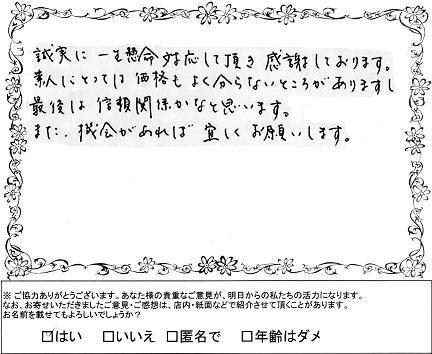 誠実に一生懸命対応して頂き感謝しております。
素人にとっては価格もよく分らないところがありますし
最後は信頼関係かなと思います。
また、機会があれば宜しくお願いします。
※ ご協力ありがとうございます。あなた様の貴重なご意見が、明日からの私たちの活力になります。
なお、お寄せいただきましたご意見・ご感想は、店内・紙面などで紹介させて頂くことがあります。
お名前を載せてもよろしいでしょうか？
☑はい □いいえ □匿名で □年齢はダメ